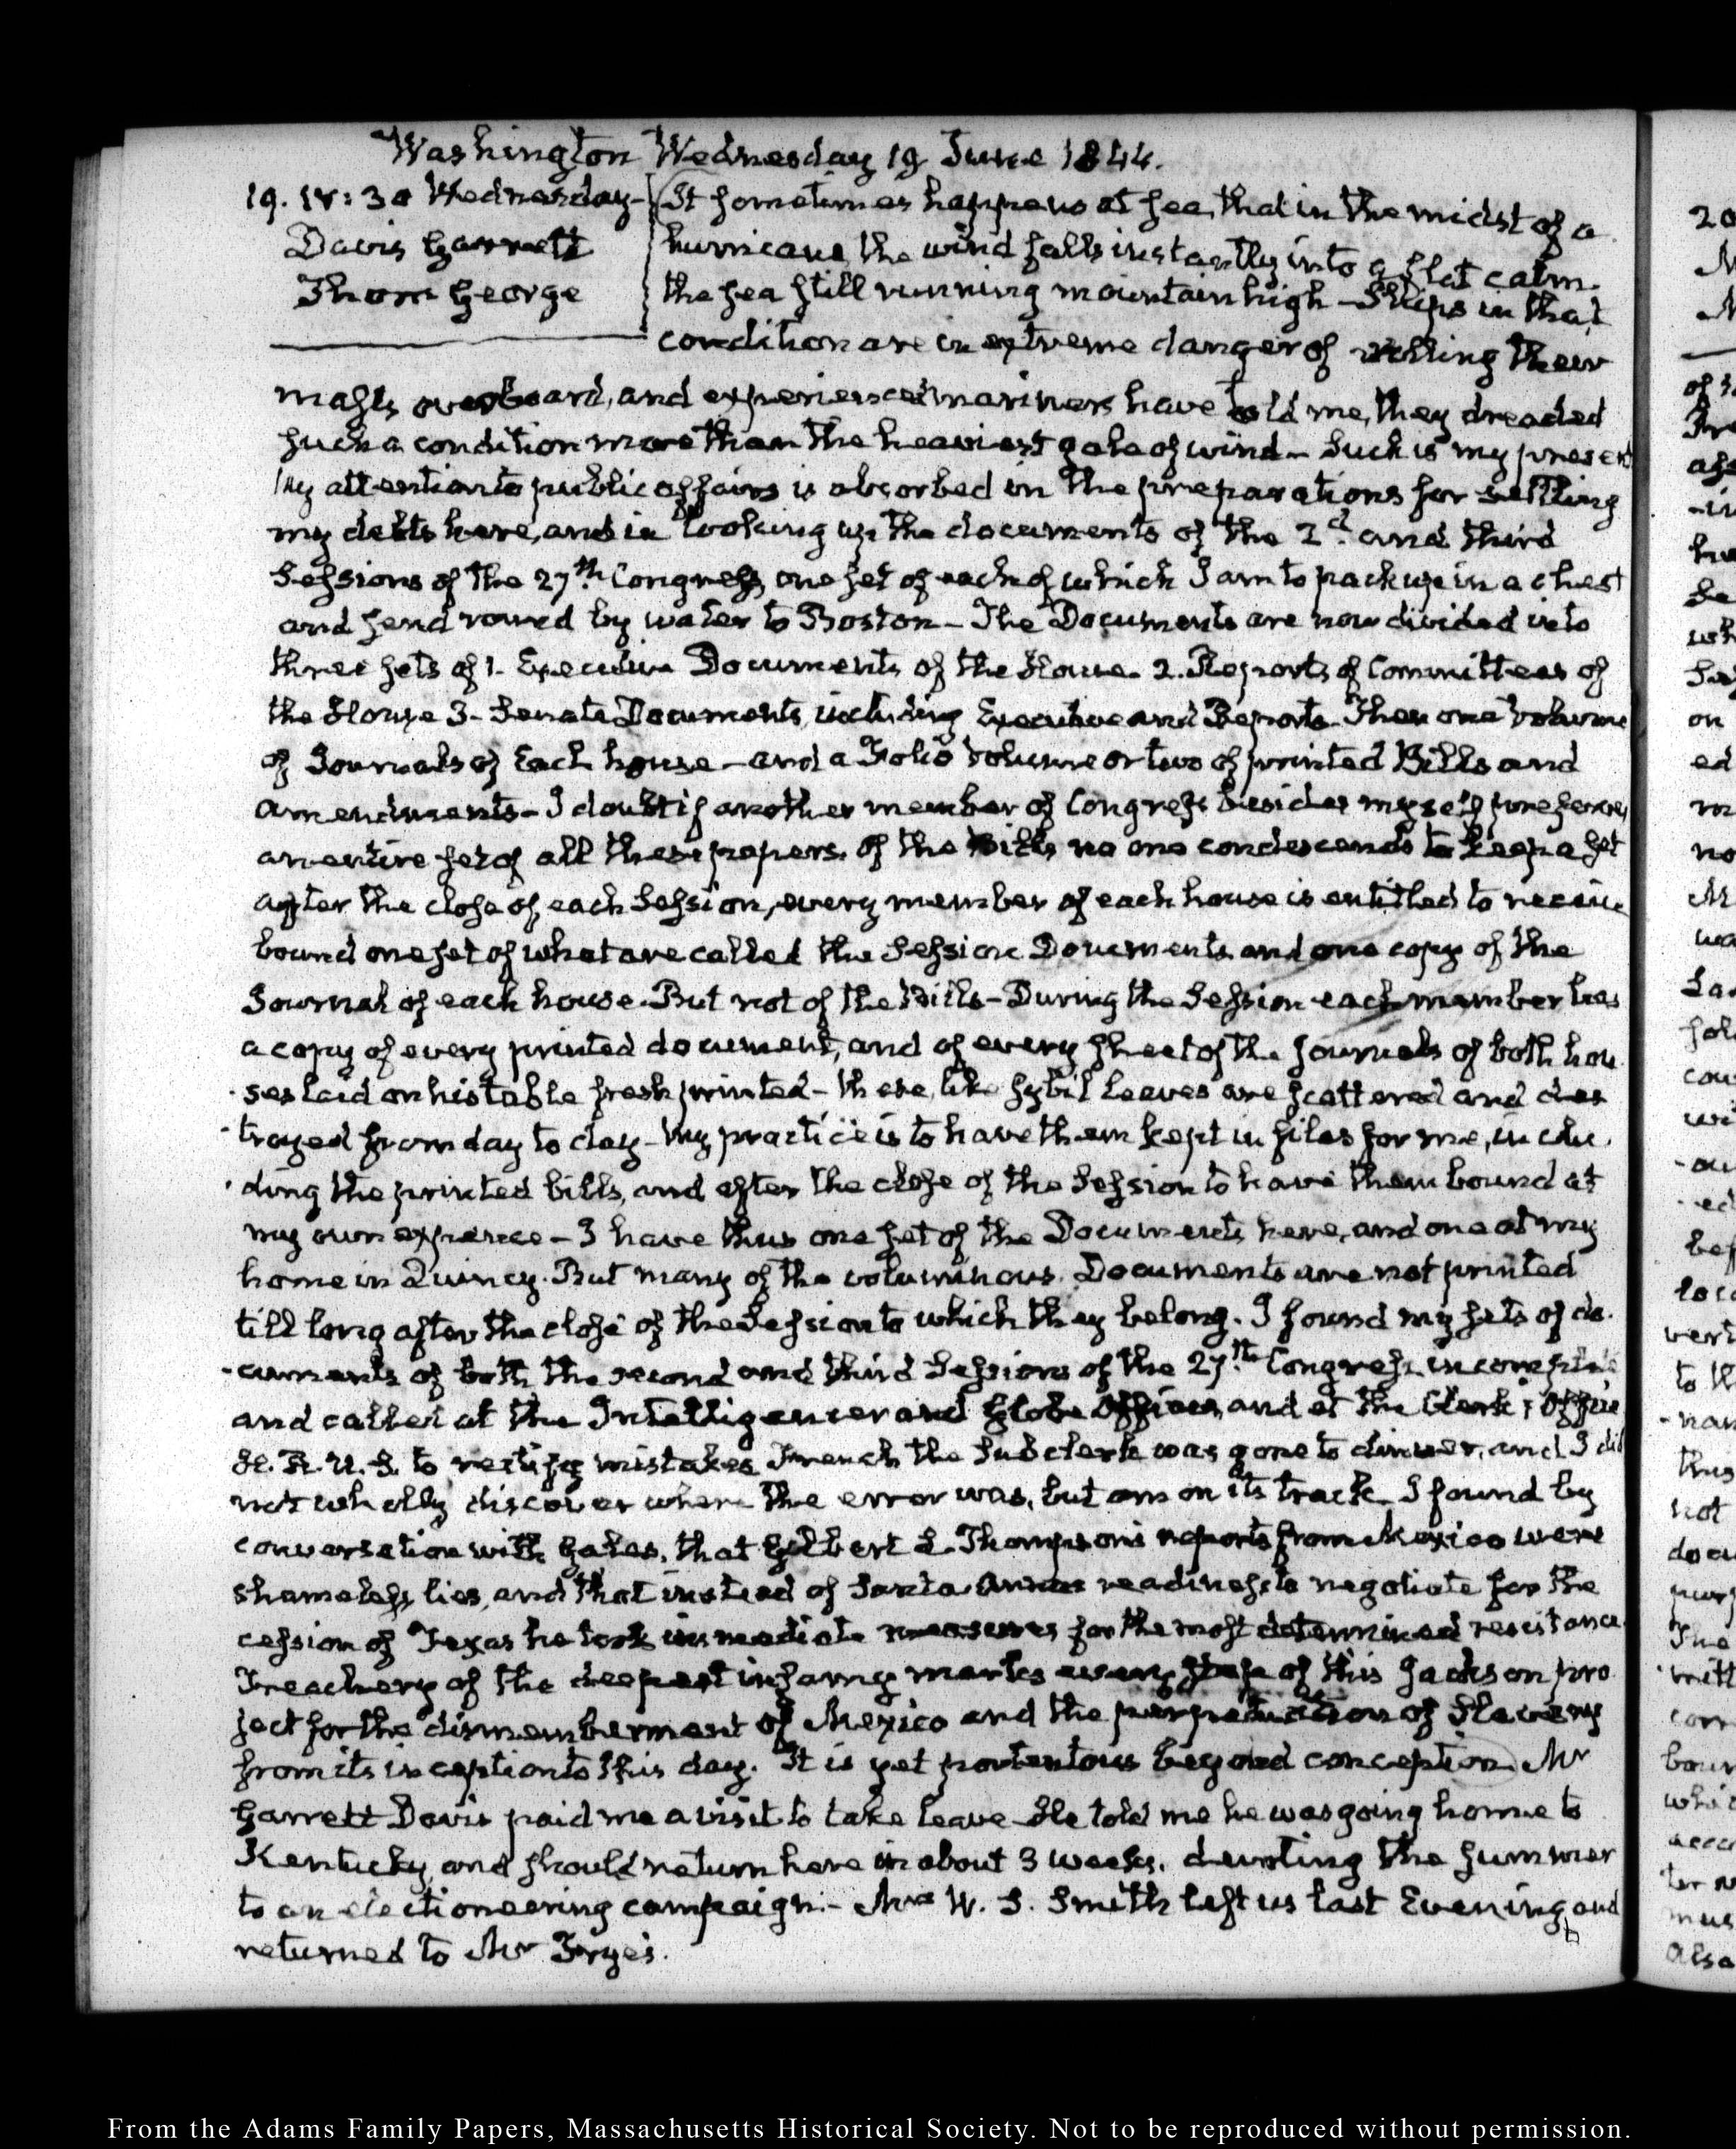 Washington Wednesday 19 June 1844.
19. IV: 30 Wednesday-
Davis Garrett
Thom George
It sometimes happens at sea, that in the midst of a
hurricane, the wind falls instantly into a flat calm.
the sea still running mountain high - Ships in that
condition are in extreme danger of rolling their
masts overboard, and experienced mariners have told me, they dreaded
such a condition more than the heaviest gale of wind - Such is my present
My attention to public affairs is absorbed in the preparations for settling
my debts here, and in looking up the documents of the 2d. and third
Sessions of the 27th. Congress, one set of each of which I am to pack up in a chest
and send round by water to Boston - The Documents are now divided into
three sets of 1. Executive Documents of the House. 2. Reports of Committees of
the House 3. Senate Documents, including Executive and Reports. Then one volume
of Journals of Each house - and a Folio volume or two of printed Bills and
amendments - I doubt if another member of Congress besides myself preserves
an entire set of all these papers. Of the Bills, no one condescends to keep a set
after the close of each Session, every member of each house is entitled to receive
bound one set of what are called the Session Documents, and one copy of the
Journal of each house. But not of the Bills - During the Session each member has
a copy of every printed document, and of every sheet of the Journals of both hou
-ses laid on his table fresh printed - these, like sybil leaves are scattered and des
-troyed from day to day - My practice is to have them kept in files for me, inclu
-ding the printed bills, and after the close of the Session to have them bound at
my own expence - I have thus one set of the Documents here, and one at my
home in Quincy. But many of the voluminous Documents are not printed
till long after the close of the Session to which they belong. I found my sets of do-
-cuments of both the second and third Sessions of the 27th. Congress incomplete
and called at the Intelligencer and Globe Offices, and at the Clerk's Office
H. R. U. S. to rectify mistakes French the Sub clerk was gone to dinner, and I did
not wholly discover where the error was, but am on its track - I found by
conversation with Gales, that Gilbert L. Thompson's reports from Mexico were
shameless lies, and that instead of Santa Annas readiness to negotiate for the
cession of Texas he took immediate measures for the most determined resistance.
Treachery of the deepest infamy marks every step of this Jackson pro
ject for the dismemberment of Mexico and the perpetuation of Slavery
from its inception to this day. It is yet portentous beyond conception. Mr
Garrett Davis paid me a visit to take leave - He told me he was going home to
Kentucky, and should return here in about 3 weeks. devoting the summer
to an electioneering campaign. - Mrs W. S. Smith left us last Evening and
returned to Mr Frye's.
From the Adams Family Papers, Massachusetts Historical Society. Not to be reproduced without permission.